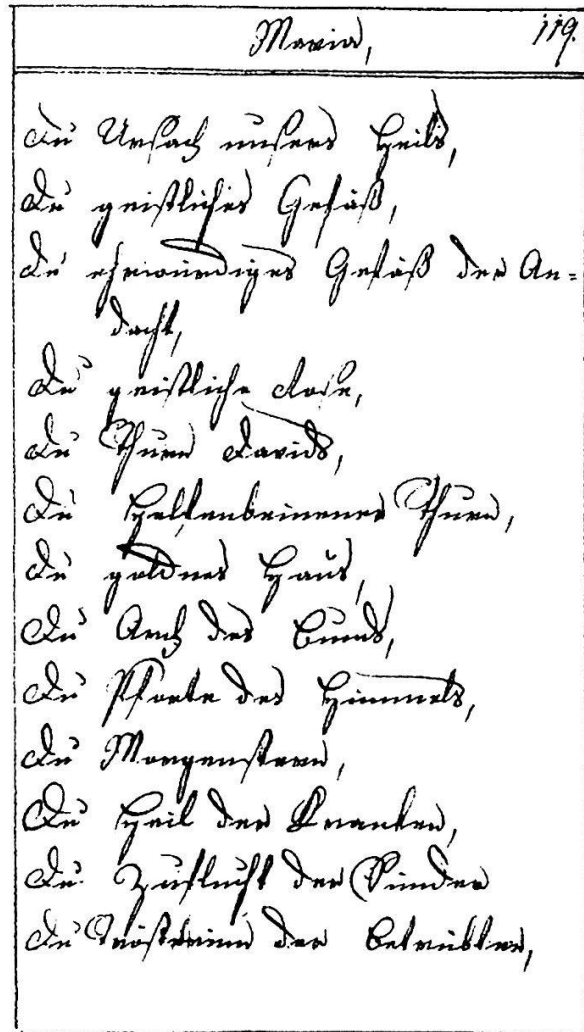 Maria, 119.
Du Ursach unsers Heils,
Du geistliches Gefäß,
Du ehrwürdiges Gefäß der An=
dacht,
Du geistliche Rose,
Du Thurn Davids,
Du Helfenbeinener Thurn,
Du goldnes Haus,
Du Arch des Bunds,
Du Pforte des Himmels,
Du Morgenstern,
Du Heil der Kranken,
Du Zuflucht der Sünder
Du Trösterinn der Betrübten,